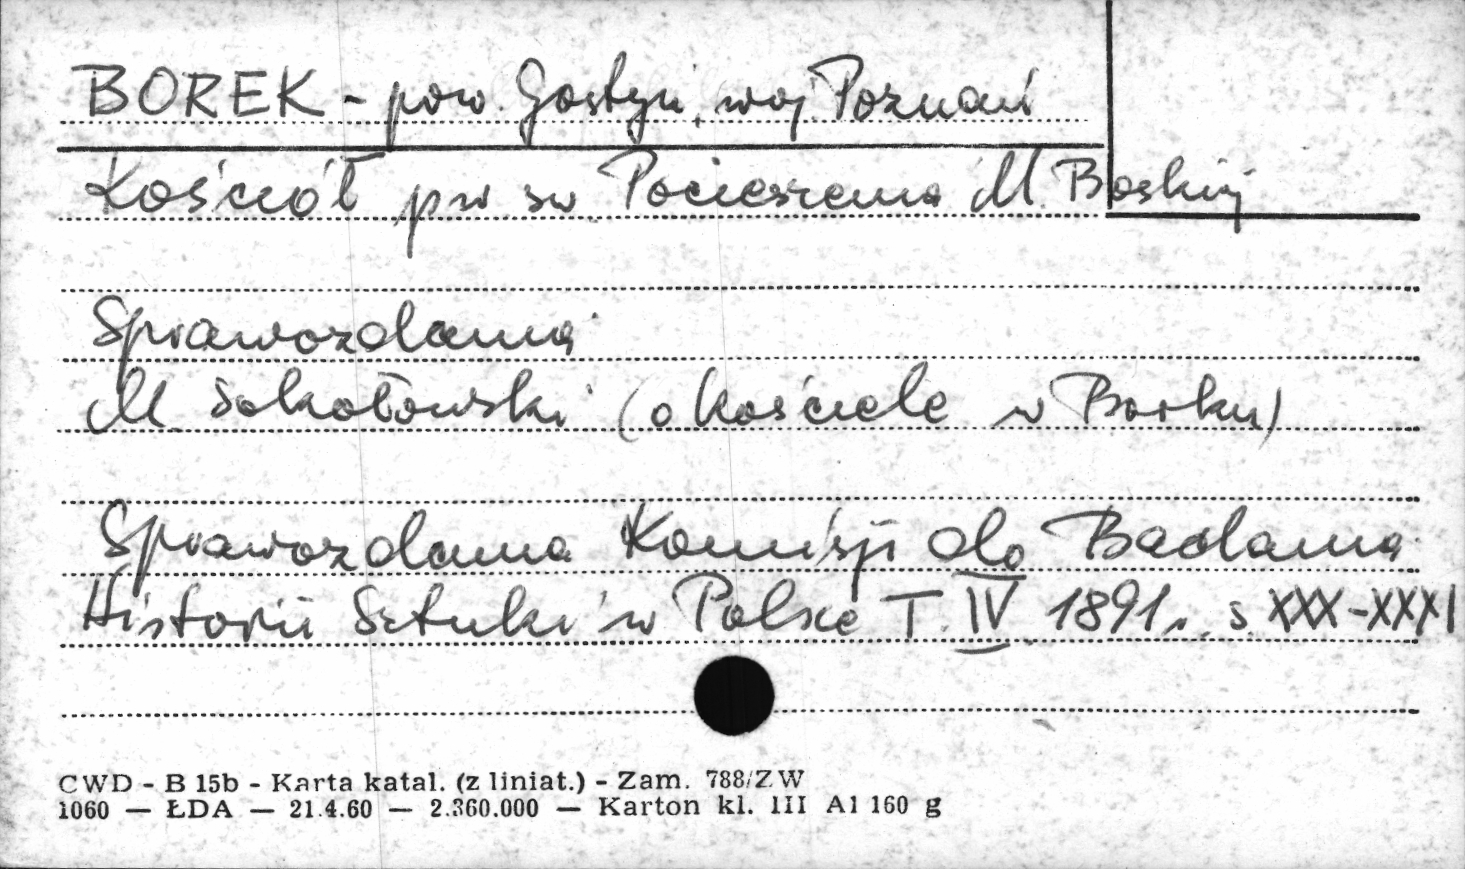 BOREK - pow. Gostyń, woj. Poznań
Kościół pw św. Pocieszenia M. Boskiej
Sprawozdania
M. Sokołowski (o kościele w Borku)
Sprawozdania Komisji do Badania
Historii Sztuki w Polsce T. IV 1891 r. s. XXX-XXXI
CWD - B 15b - Karta katal. (z liniat.) - Zam. 788/ZW
1060 — ŁDA — 21.4.60 — 2.360.000 — Karton kl. III A1 160 g